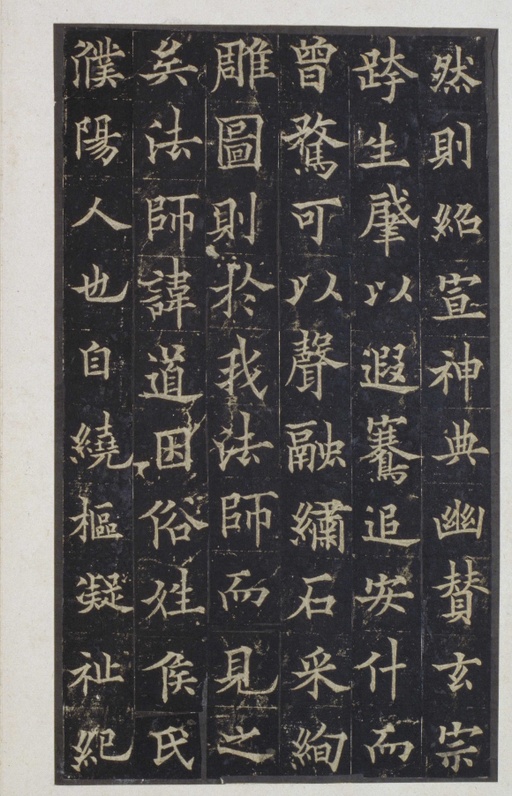 然則紹宣神典幽賛玄宗
跨生肇以遐騫追安什而
曾騖可以聲融繡石采絢
雕圖則於我法師而見之
矣法師諱道因俗姓侯氏
濮陽人也自繞樞凝祉紀